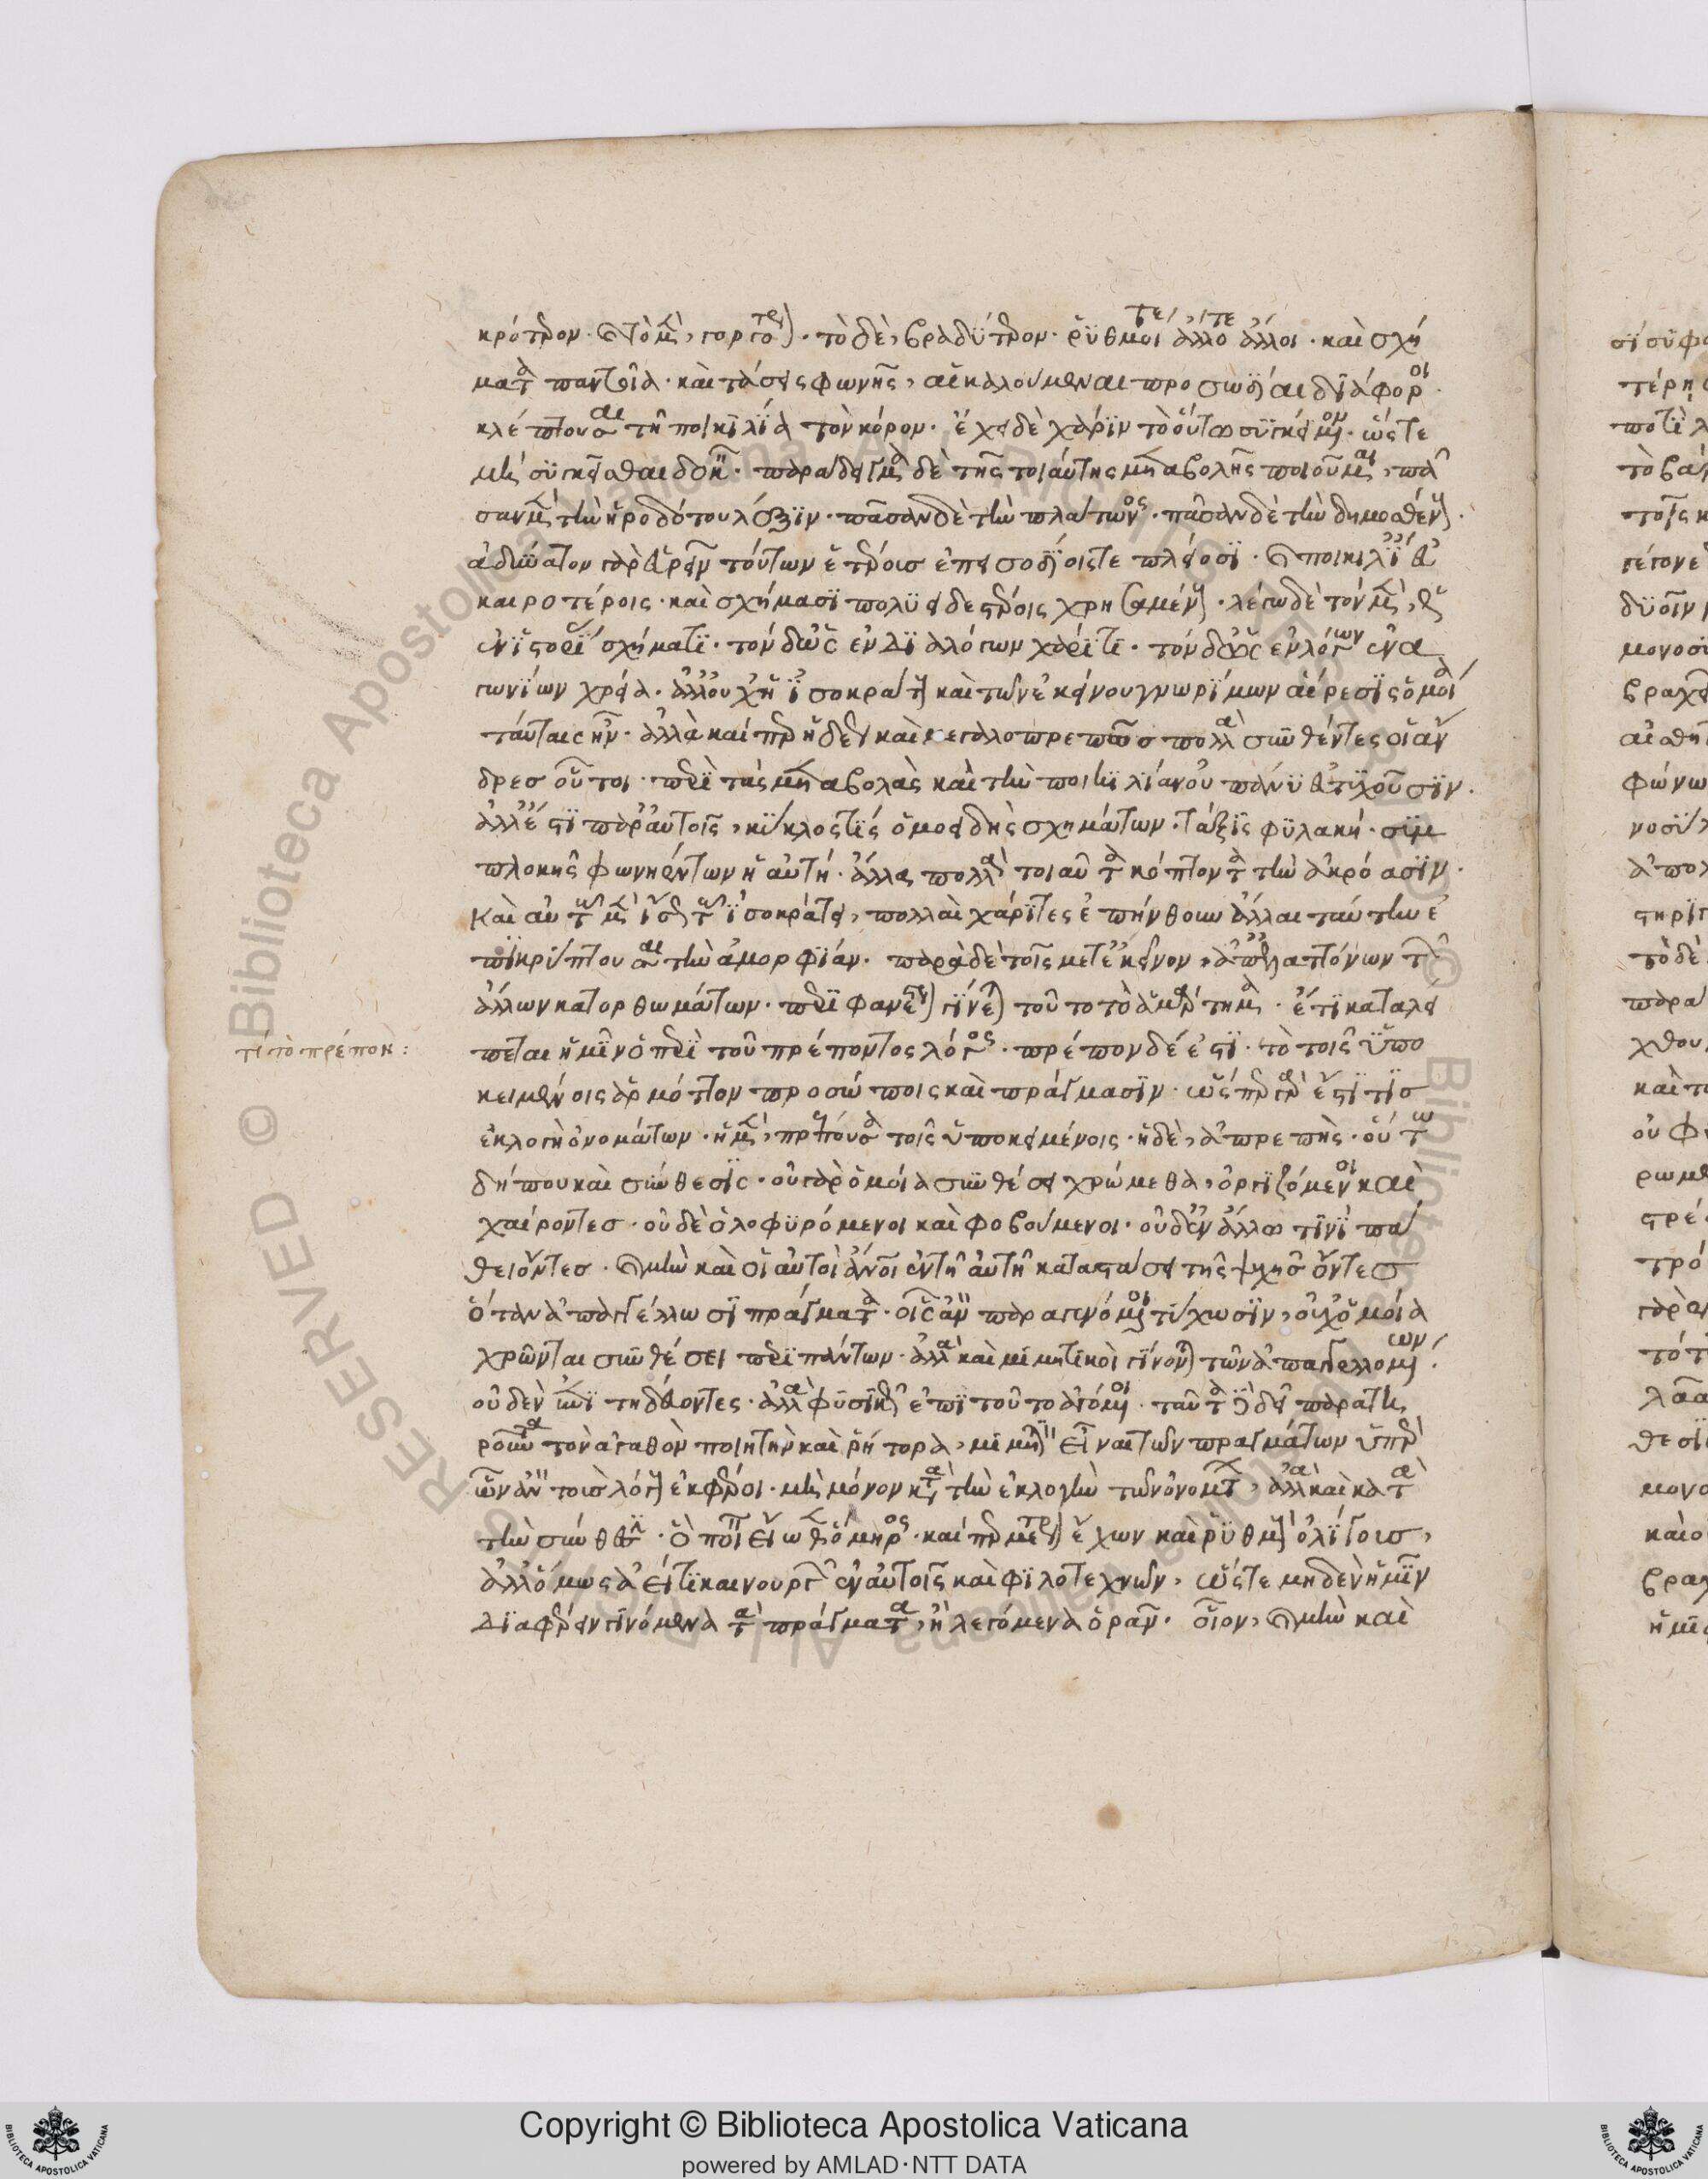 κρότερον· καὶ τὸ μὲν, γοργότερον· τὸ δὲ, βραδύτερον· ῥυθμοί τε ἄλλοτε ἄλλοι· καὶ σχή
ματα παντοῖα· καὶ τάσεις φωνῆς, αἱ καλούμεναι προσωδίαι διάφοροι
κλέπτουσαι τῆ ποικιλία τὸν κόρον· ἔχει δὲ χάριν τὸ οὕτω συγκείμενον· ὥστε
μὴ συγκεῖσθαι δοκεῖν· παράδειγμα δὲ τῆς τοιαύτης μεταβολῆς ποιοῦμαι, πᾶ
σαν μὲν τὴν ἡροδότου λέξιν· πᾶσαν δὲ τὴν πλάτωνος· πᾶσαν δὲ τὴν δημοσθένους·
ἀδύνατον γὰρ εὑρεῖν τούτων ἑτέρους ἐπεισοδίοις τε πλείοσι· καὶ ποικιλίαις εὐ
καιροτέροις· καὶ σχήμασι πολυειδεστέροις χρησαμένους· λέγω δὲ τὸν μὲν, ὡς
ἐν ἱστορίας σχήματι· τὸν δ' ὡς ἐν διαλόγων χάριτι· τὸν δ' ὡς ἐν λόγων ἐνα
γωνίων χρεία· ἀλλ' οὐχ ἡ ἰσοκράτους καὶ τῶν ἐκείνου γνωρίμων αἵρεσις ὁμοία
ταύταις ἦν· ἀλλὰ καίπερ ἡδέως καὶ μεγαλοπρεπῶς πολλὰ συνθέντες οἱ ἄν
δρες οὗτοι· περὶ τὰς μεταβολὰς καὶ τὴν ποικιλίαν οὐ πάνυ εὐτυχοῦσιν·
ἀλλ' ἔστι παρ' αὐτοῖς, κύκλος τίς ὁμοειδὴς σχημάτων· τάξις φυλακή· συμ
πλοκῆς φωνηέντων ἡ αὐτή· ἄλλα πολλὰ τοιαῦτα κόπτοντα τὴν ἀκρόασιν·
καὶ αὐτῶ μὲν ἴσως τῶ ἰσοκράτει, πολλαὶ χάριτες ἐπήνθουν ἄλλαι ταύτην ἐ
πικρύπτουσαι τὴν ἀμορφίαν· παρὰ δὲ τοῖς μετ' ἐκεῖνον, ἀπ' ἐλαττόνων τῶν
ἄλλων κατορθωμάτων· περιφανέστερον γίνεται τοῦτο τὸ ἁμάρτημα· ἔτι καταλεί
τί τὸ πρέπον:
πεται ἡμῖν ὁ περὶ τοῦ πρέποντος λόγος· πρέπον δέ ἐστι· τὸ τοῖς ὑπο
κειμένοις ἁρμόττον προσώποις καὶ πράγμασιν· ὥσπερ γὰρ ἔστι τις
ἐκλογὴ ὀνομάτων· ἡ μὲν, πρέπουσα τοῖς ὑποκειμένοις· ἡ δὲ, ἀπρεπὴς· οὕτω
δήπου καὶ σύνθεσις· οὐ γὰρ ὁμοία συνθέσει χρώμεθα, ὀργιζόμενοι καὶ
χαίροντες· οὐδὲ ὀλοφυρόμενοι καὶ φοβούμενοι· οὐδ' ἐν ἄλλω τινὶ πά
θει ὄντες· καὶ μὴν καὶ οἱ αὐτοὶ ἄνοι ἐν τῆ αὐτῆ καταστάσει τῆς ψυχῆς ὄντες
ὅταν ἀπαγγέλλωσι πράγματα· οἷς ἂν παραγινόμενοι τύχωσιν, οὐχ ὁμοία
χρῶνται συνθέσει περὶ πάντων· ἀλλὰ καὶ μιμητικοὶ γίνονται τῶν ἀπαγγελλομένων·
οὐδὲν ἐπιτηδεύοντες· ἀλλὰ φυσικῶς ἐπὶ τοῦτο ἀγόμενοι· ταῦτα δεῖ παρατη
ροῦντα τὸν ἀγαθὸν ποιητὴν καὶ ῥήτορα, μιμητικὸν εἶναι τῶν πραγμάτων ὑπὲρ
ὧν ἂν τοὺς λόγους ἐκφέροι· μὴ μόνον κατὰ τὴν ἐκλογὴν τῶν ὀνομάτων, ἀλλὰ καὶ κατὰ
τὴν σύνθεσιν· ὃ ποιεῖν εἴωθεν ὅμηρος· καίπερ μέτρον ἔχων καὶ ῥυθμοὺς ὀλίγους,
ἀλλ' ὅμως ἀεί τι καινουργῶν ἐν αὐτοῖς καὶ φιλοτεχνῶν, ὥστε μηδὲν ἡμῖν
διαφέρειν γινόμενα τὰ πράγματα, ἢ λεγόμενα ὁρᾶν· οἷον, καὶ μὴν καὶ
Copyright © Biblioteca Apostolica Vaticana
powered by AMLAD·NTT DATA